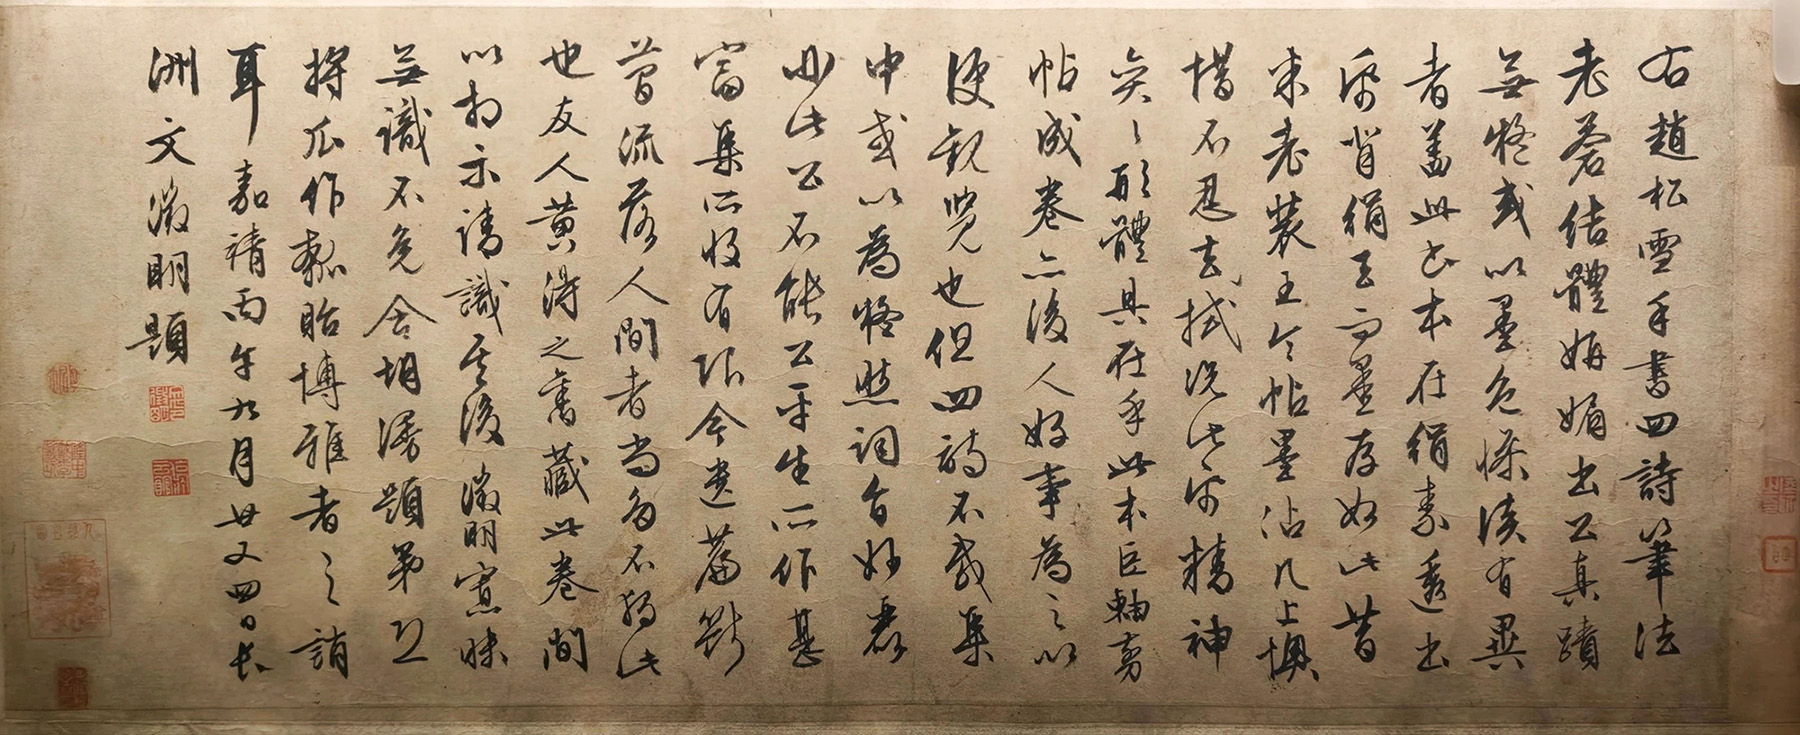 右趙松雪手書四詩筆法
老蒼結體姌嫋出公真蹟
無疑或以墨色慘淡有異
者蓋此書本在絹素透出
紙背絹毛而墨存如此昔
米老裝王令帖墨沾几上懊
惜不忍去拭況此紙精神
奕奕形體具在乎此本巨軸剪
帖成卷亦後人好事為之以
便觀覽也但四詩不載集
中或以為疑然詞旨妙麗
非此公不能公平生所作甚
富集所收有限今遺篇斷
簡流落人間者尚多不獨此
也友人黃得之舊藏此卷間
以相示請識其後徵明寡昧
無識不免含胡漫題第恐
將瓜作瓠貽博雅者之誚
耳嘉靖丙午九月廿又四日長
洲文徵明題